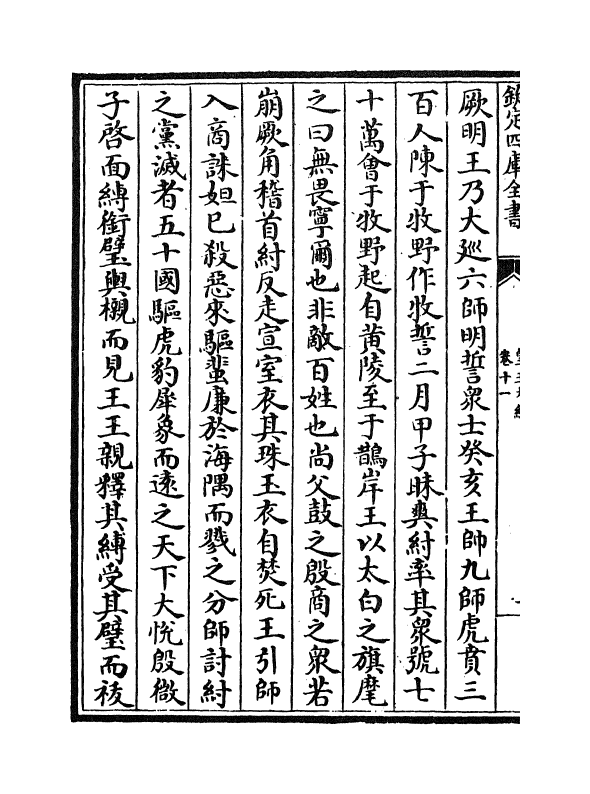 欽定四庫全書
卷十一
厥明王乃大廵六師明誓衆士癸亥王帥九師虎賁三
百人陳于牧野作牧誓二月甲子昧爽紂率其衆號七
十萬會于牧野起自黄陵至于鵲岸王以太白之旗麾
之曰無畏寧爾也非敵百姓也尚父鼓之殷商之衆若
崩厥角稽首紂反走宣室衣其珠玉衣自焚死王引師
入商誅妲已殺惡來驅蜚廉於海隅而戮之分師討紂
之黨滅者五十國驅虎豹犀象而逺之天下大悅殷微
子啓面縛銜璧輿櫬而見王王親釋其縛受其璧而祓